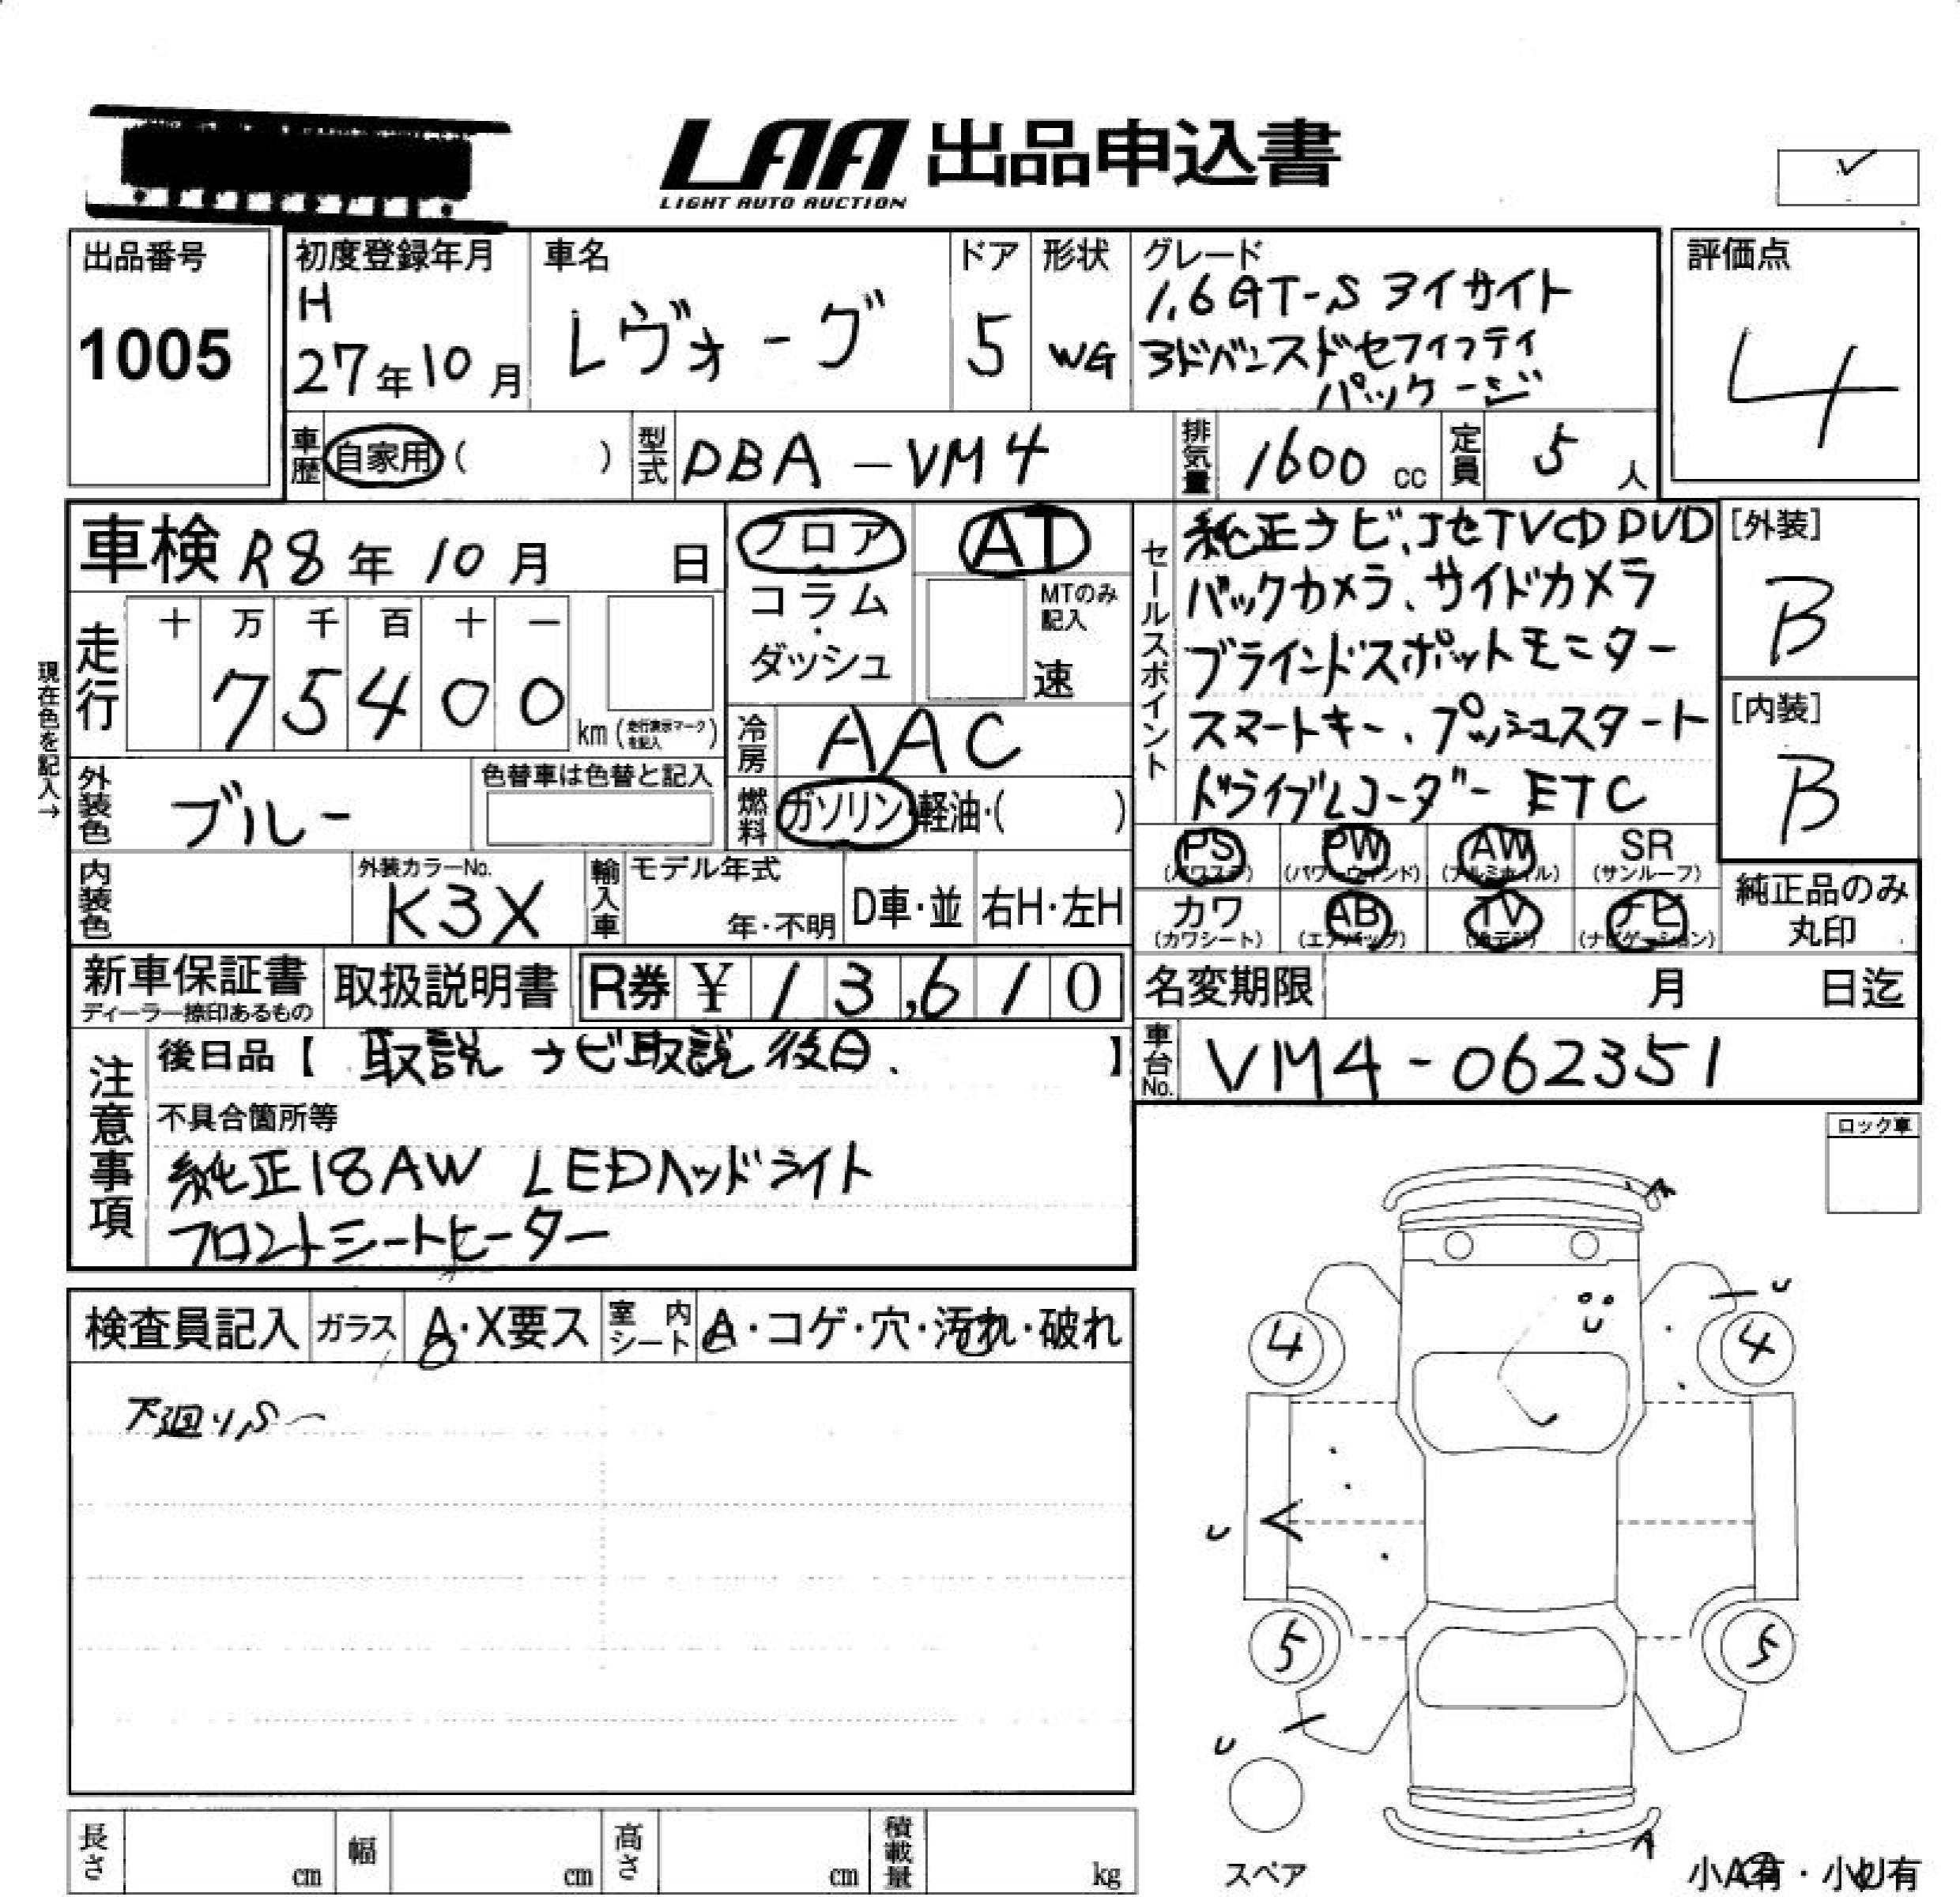 LAA 出品申込書
LIGHT AUTO AUCTION
出品番号
1005
初度登録年月
H
27年10月
車名
レヴォーグ
ドア
5
形状
WG
グレード
1.6GT-S アイサイト
アドバンスドセフィフティ
パッケージ
評価点
4
車歴 自家用 ( )
型式 DBA-VM4
排気量 1600 cc
定員 5 人
車検 R8年10月 日
走行 十 万 千 百 十 一
75400 km (走行表示マークを記入)
現在色を記入→
外装色 ブルー
色替車は色替と記入
内装色
外装カラーNo.
K3X
輸入車
モデル年式
年・不明
D車・並
右H・左H
フロア・コラム・ダッシュ
AT
MTのみ記入
速
冷房 AAC
燃料 ガソリン・軽油・( )
セールスポイント
純正ナビ、地セTVCD DVD
バックカメラ、サイドカメラ
ブラインドスポットモニター
スマートキー、プッシュスタート
ドライブレコーダー ETC
[外装]
B
[内装]
B
PS (パワステ)
PW (パワーウィンド)
AW (アルミホイル)
SR (サンルーフ)
カワ (カワシート)
AB (エアバッグ)
TV (地デジ)
ナビ (ナビゲーション)
純正品のみ丸印
新車保証書
ディーラー捺印あるもの
取扱説明書
R券 ¥13,610
名変期限 月 日迄
車台No. VM4-062351
注意事項
後日品【 取説 ナビ取説 後日. 】
不具合箇所等
純正18AW LEDヘッドライト
フロントシートヒーター
ロック車
検査員記入
ガラス A・X要ス
室内シート A・コゲ・穴・汚れ・破れ
下廻りS
4
4
5
5
U
U
U
U
A
A
スペア
小A有・小U有
長さ cm
幅 cm
高さ cm
積載量 kg